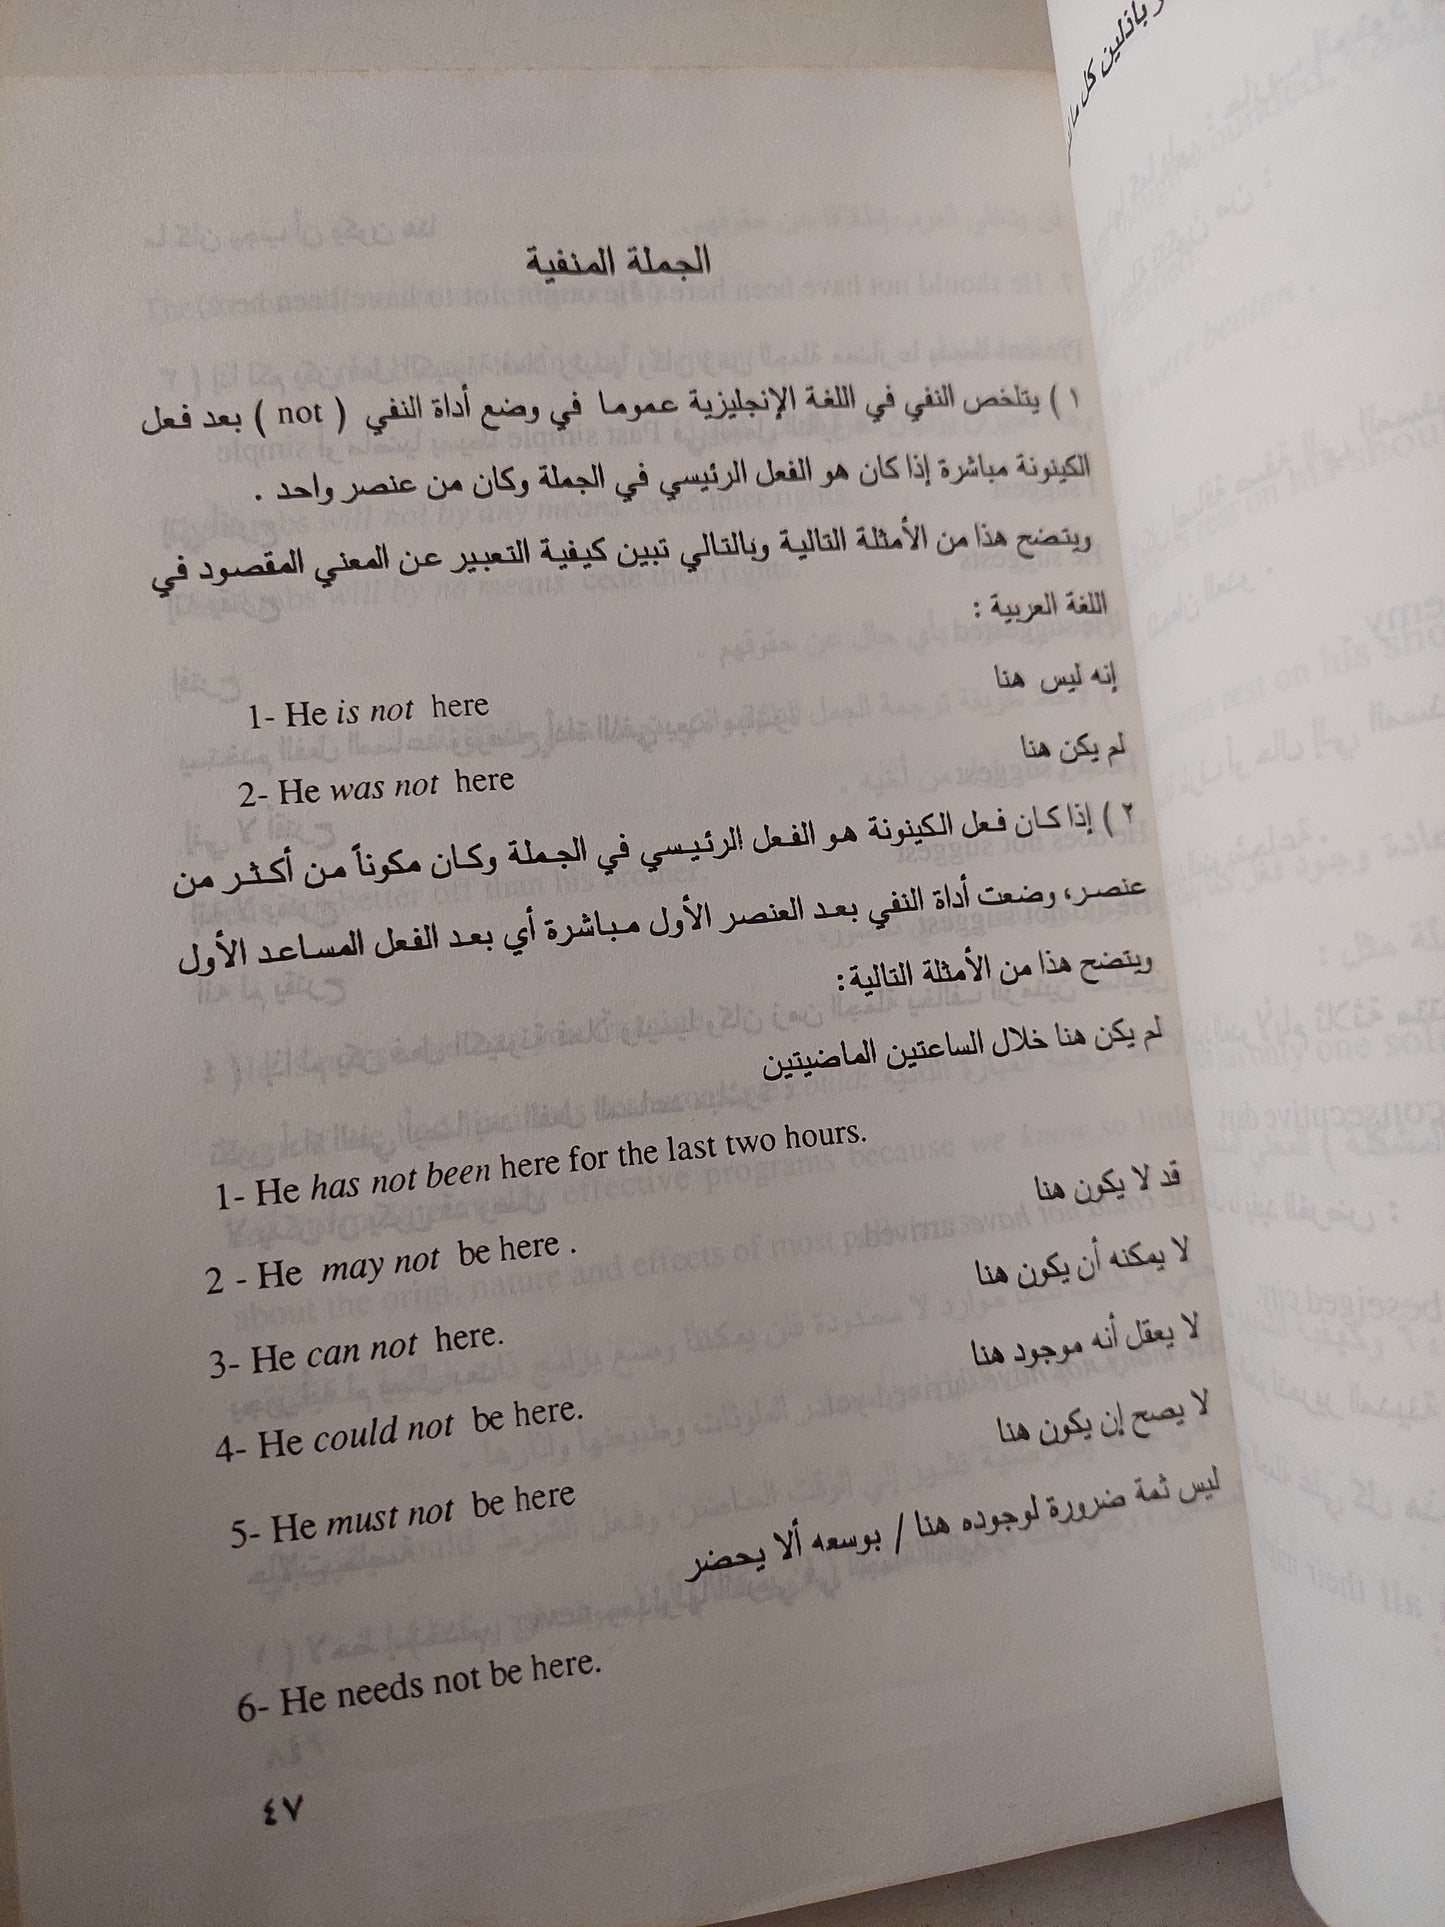 الجملة المنفية
١ ) يتلخص النفي في اللغة الإنجليزية عموما في وضع أداة النفي ( not ) بعد فعل
الكينونة مباشرة إذا كان هو الفعل الرئيسي في الجملة وكان من عنصر واحد .
ويتضح هذا من الأمثلة التالية وبالتالي تبين كيفية التعبير عن المعني المقصود في
اللغة العربية :
إنه ليس هنا
1- He is not here
لم يكن هنا
2- He was not here
٢ ) إذا كان فعل الكينونة هو الفعل الرئيسي في الجملة وكان مكوناً من أكثر من
عنصر، وضعت أداة النفي بعد العنصر الأول مباشرة أي بعد الفعل المساعد الأول
ويتضح هذا من الأمثلة التالية:
لم يكن هنا خلال الساعتين الماضيتين
1- He has not been here for the last two hours.
قد لا يكون هنا
2 - He may not be here .
لا يمكنه أن يكون هنا
3- He can not here.
لا يعقل أنه موجود هنا
4- He could not be here.
لا يصح إن يكون هنا
5- He must not be here
ليس ثمة ضرورة لوجوده هنا / بوسعه ألا يحضر
6- He needs not be here.
٤٧
باذلين كل